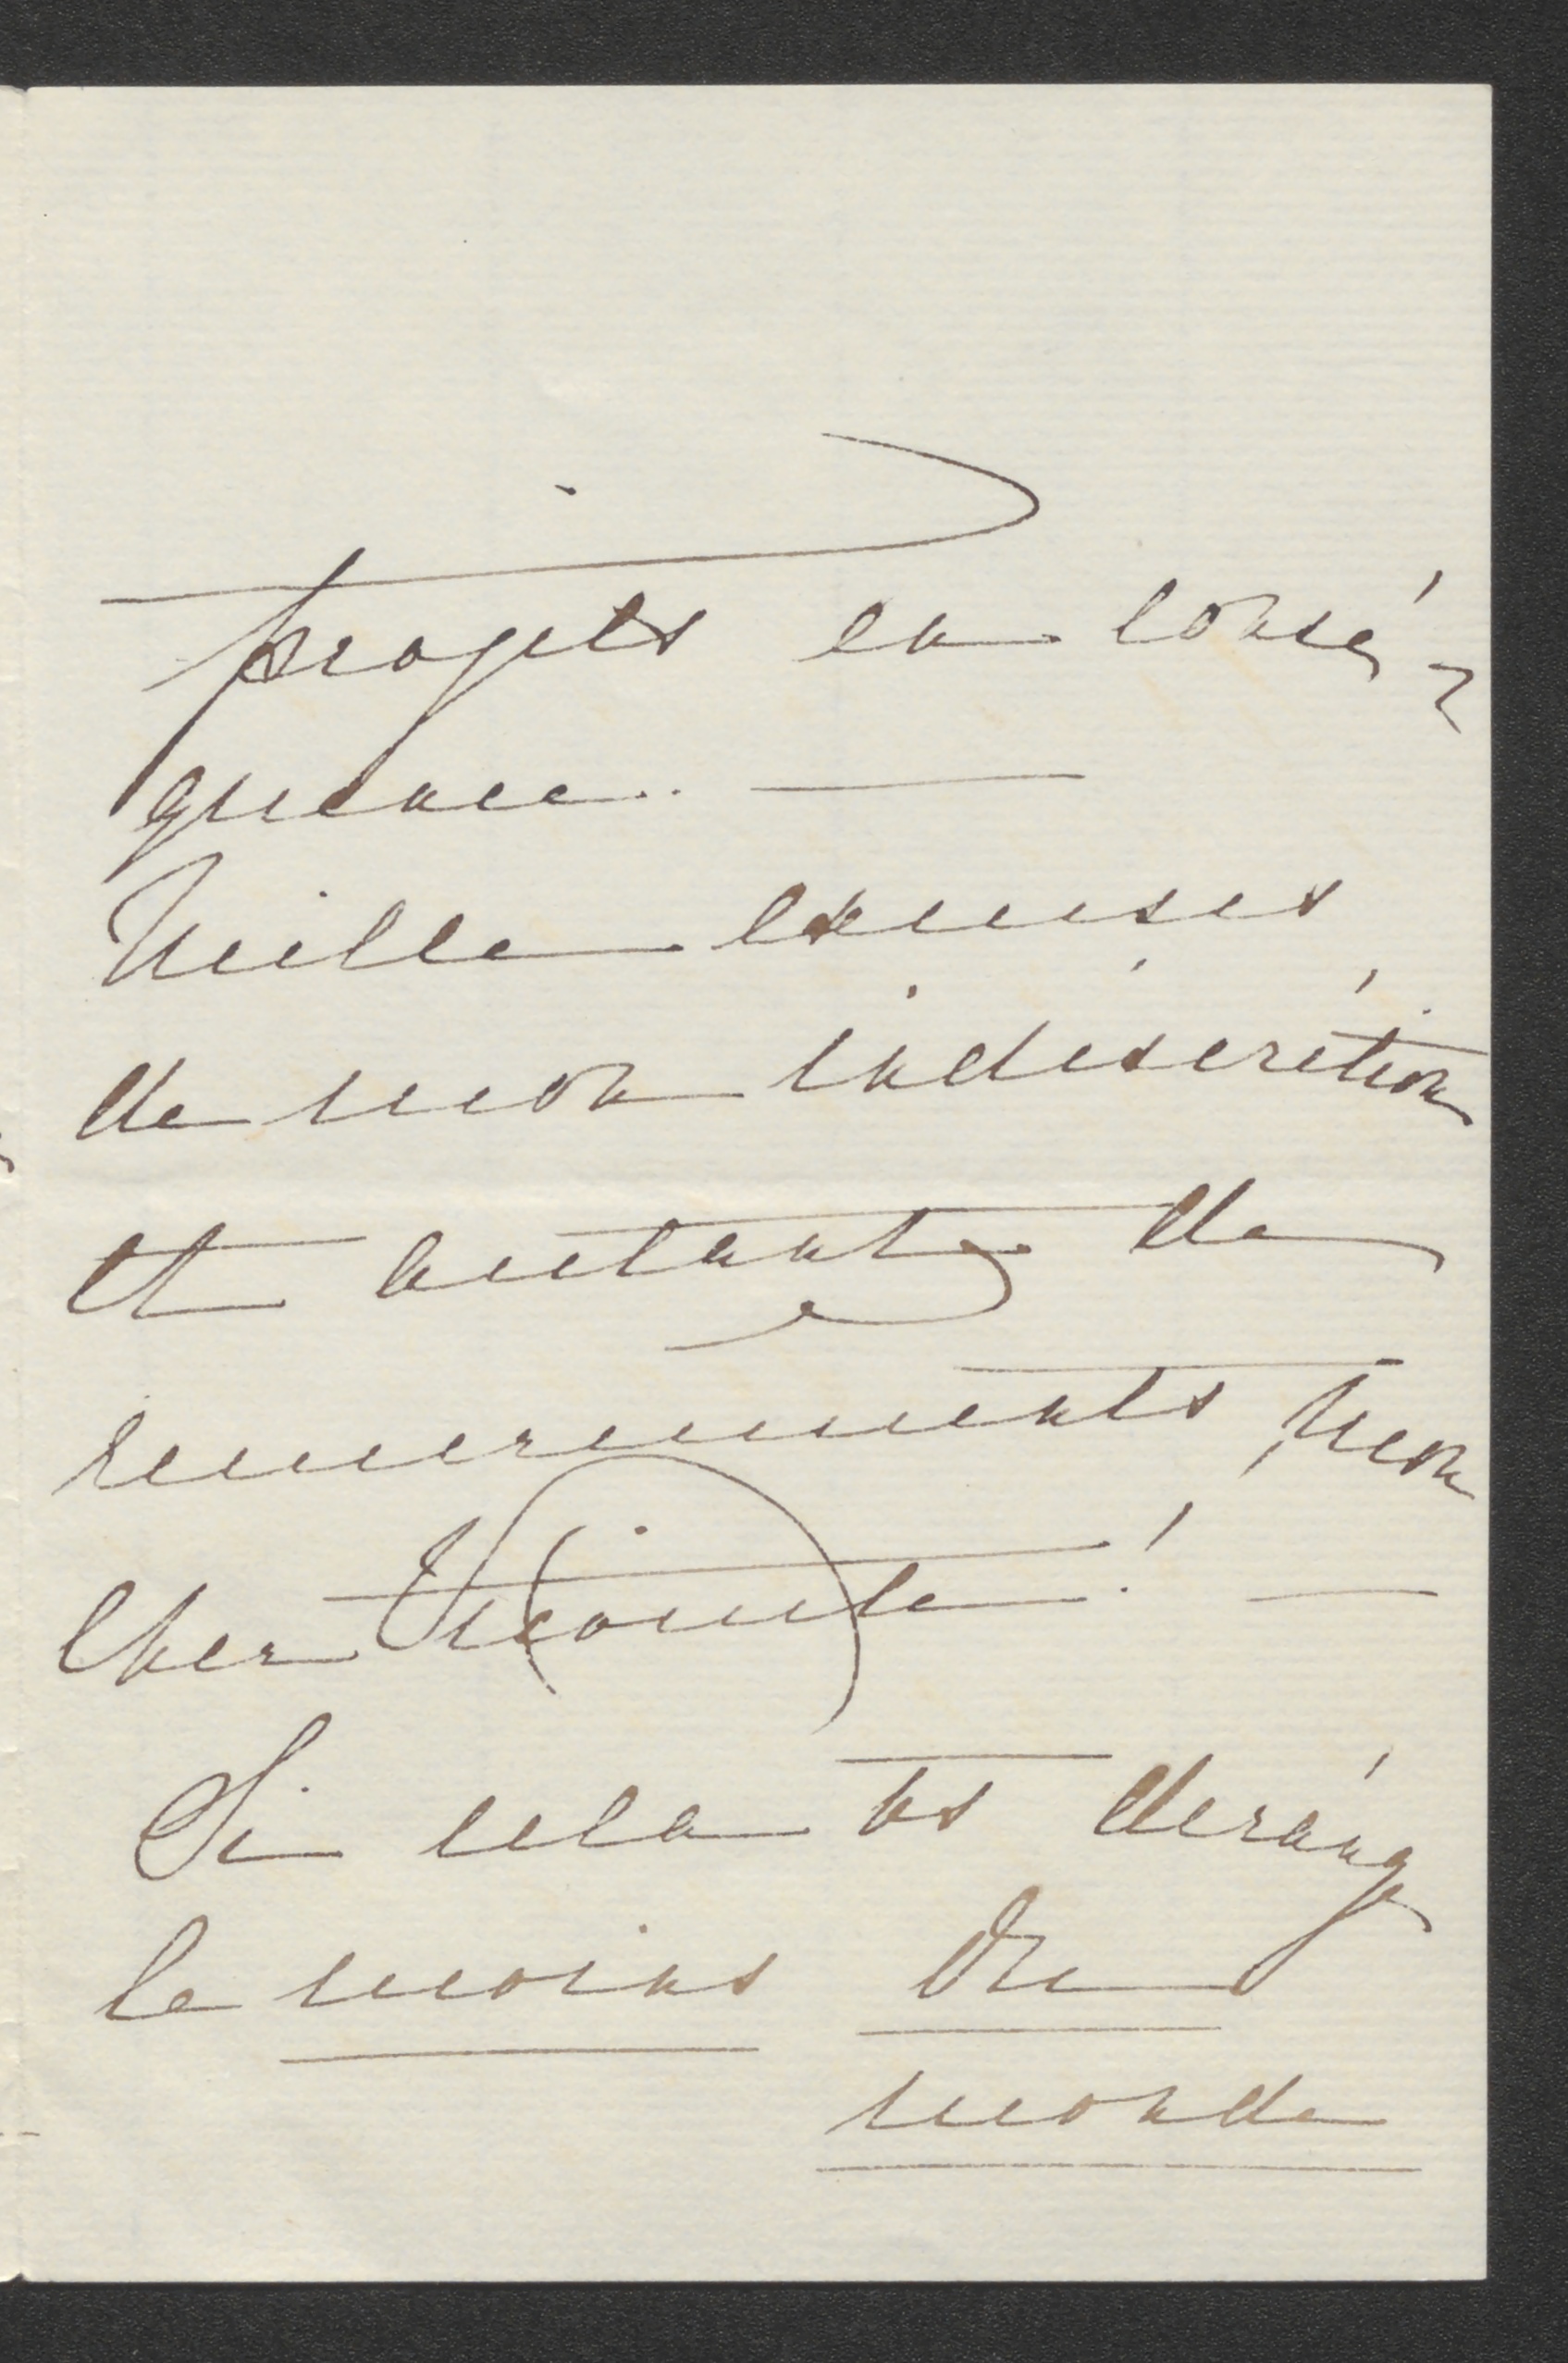 projets en consé-
quence. —
Mille excuses
de mon indiscrétion
et autant de
remerciements, mon
cher Vicomte! —
Si cela vs dérange
le moins du
monde